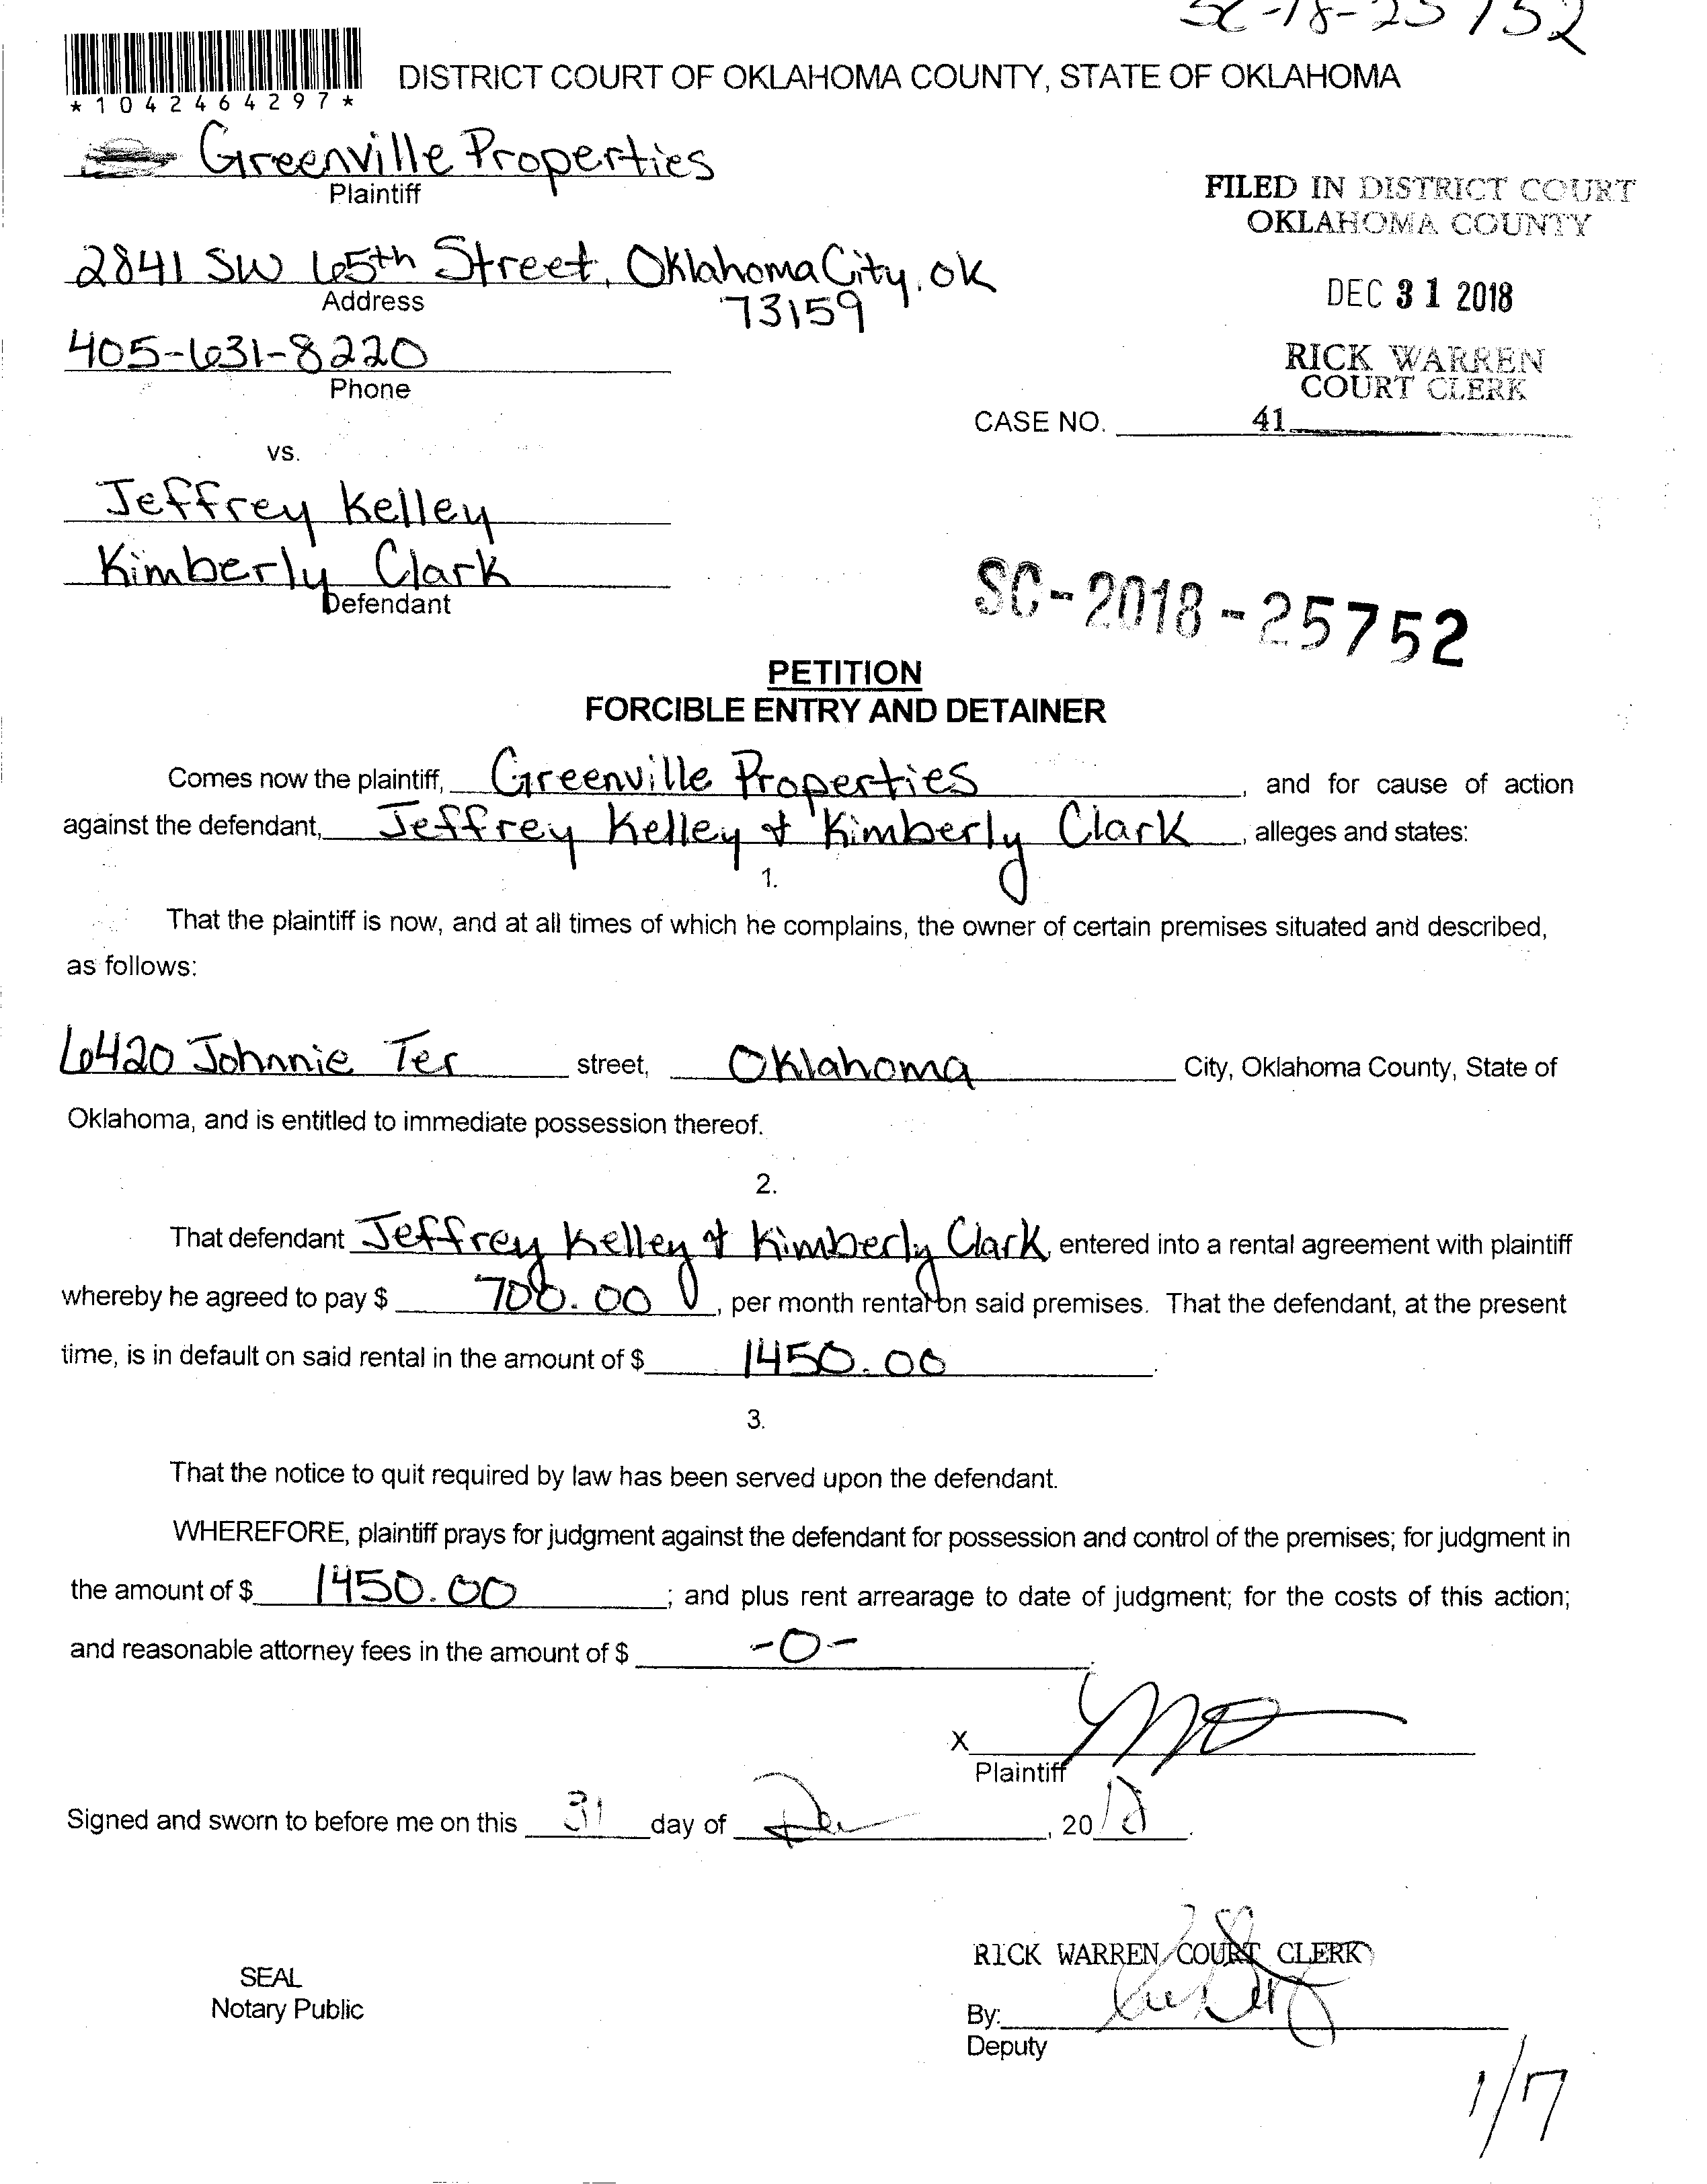 SC-18-25752
*1042464297*
DISTRICT COURT OF OKLAHOMA COUNTY, STATE OF OKLAHOMA
Greenville Properties
Plaintiff
FILED IN DISTRICT COURT
OKLAHOMA COUNTY
2841 SW 65th Street, Oklahoma City, OK
73159
Address
DEC 31 2018
405-631-8220
Phone
RICK WARREN
COURT CLERK
CASE NO. 41
vs.
Jeffrey Kelley
Kimberly Clark
Defendant
SC-2018-25752
PETITION
FORCIBLE ENTRY AND DETAINER
Comes now the plaintiff, Greenville Properties, and for cause of action
against the defendant, Jeffrey Kelley & Kimberly Clark, alleges and states:
1.
That the plaintiff is now, and at all times of which he complains, the owner of certain premises situated and described,
as follows:
6420 Johnnie Ter street, Oklahoma City, Oklahoma County, State of
Oklahoma, and is entitled to immediate possession thereof.
2.
That defendant Jeffrey Kelley & Kimberly Clark entered into a rental agreement with plaintiff
whereby he agreed to pay $ 700.00, per month rental on said premises. That the defendant, at the present
time, is in default on said rental in the amount of $ 1450.00.
3.
That the notice to quit required by law has been served upon the defendant.
WHEREFORE, plaintiff prays for judgment against the defendant for possession and control of the premises; for judgment in
the amount of $ 1450.00; and plus rent arrearage to date of judgment; for the costs of this action;
and reasonable attorney fees in the amount of $ -0-.
X
Plaintiff
Signed and sworn to before me on this 31 day of Dec, 2018.
SEAL
Notary Public
RICK WARREN COURT CLERK
By:
Deputy
1/17